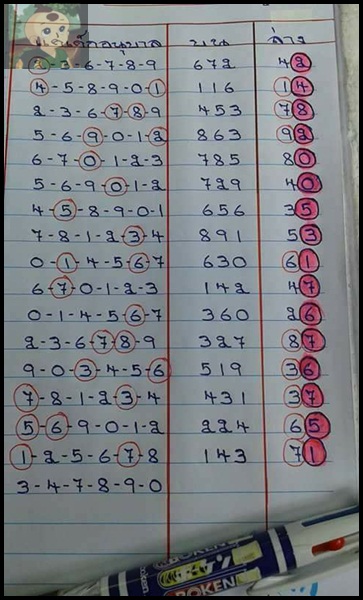 บน ล่าง
2-3-6-7-8-9 672 42
4-5-8-9-0-1 116 14
2-3-6-7-8-9 453 78
5-6-9-0-1-2 863 92
6-7-0-1-2-3 785 80
5-6-9-0-1-2 729 40
4-5-8-9-0-1 656 35
7-8-1-2-3-4 891 53
0-1-4-5-6-7 630 61
6-7-0-1-2-3 142 47
0-1-4-5-6-7 360 26
2-3-6-7-8-9 327 87
9-0-3-4-5-6 519 36
7-8-1-2-3-4 431 37
5-6-9-0-1-2 224 65
1-2-5-6-7-8 143 71
3-4-7-8-9-0
BOKEN